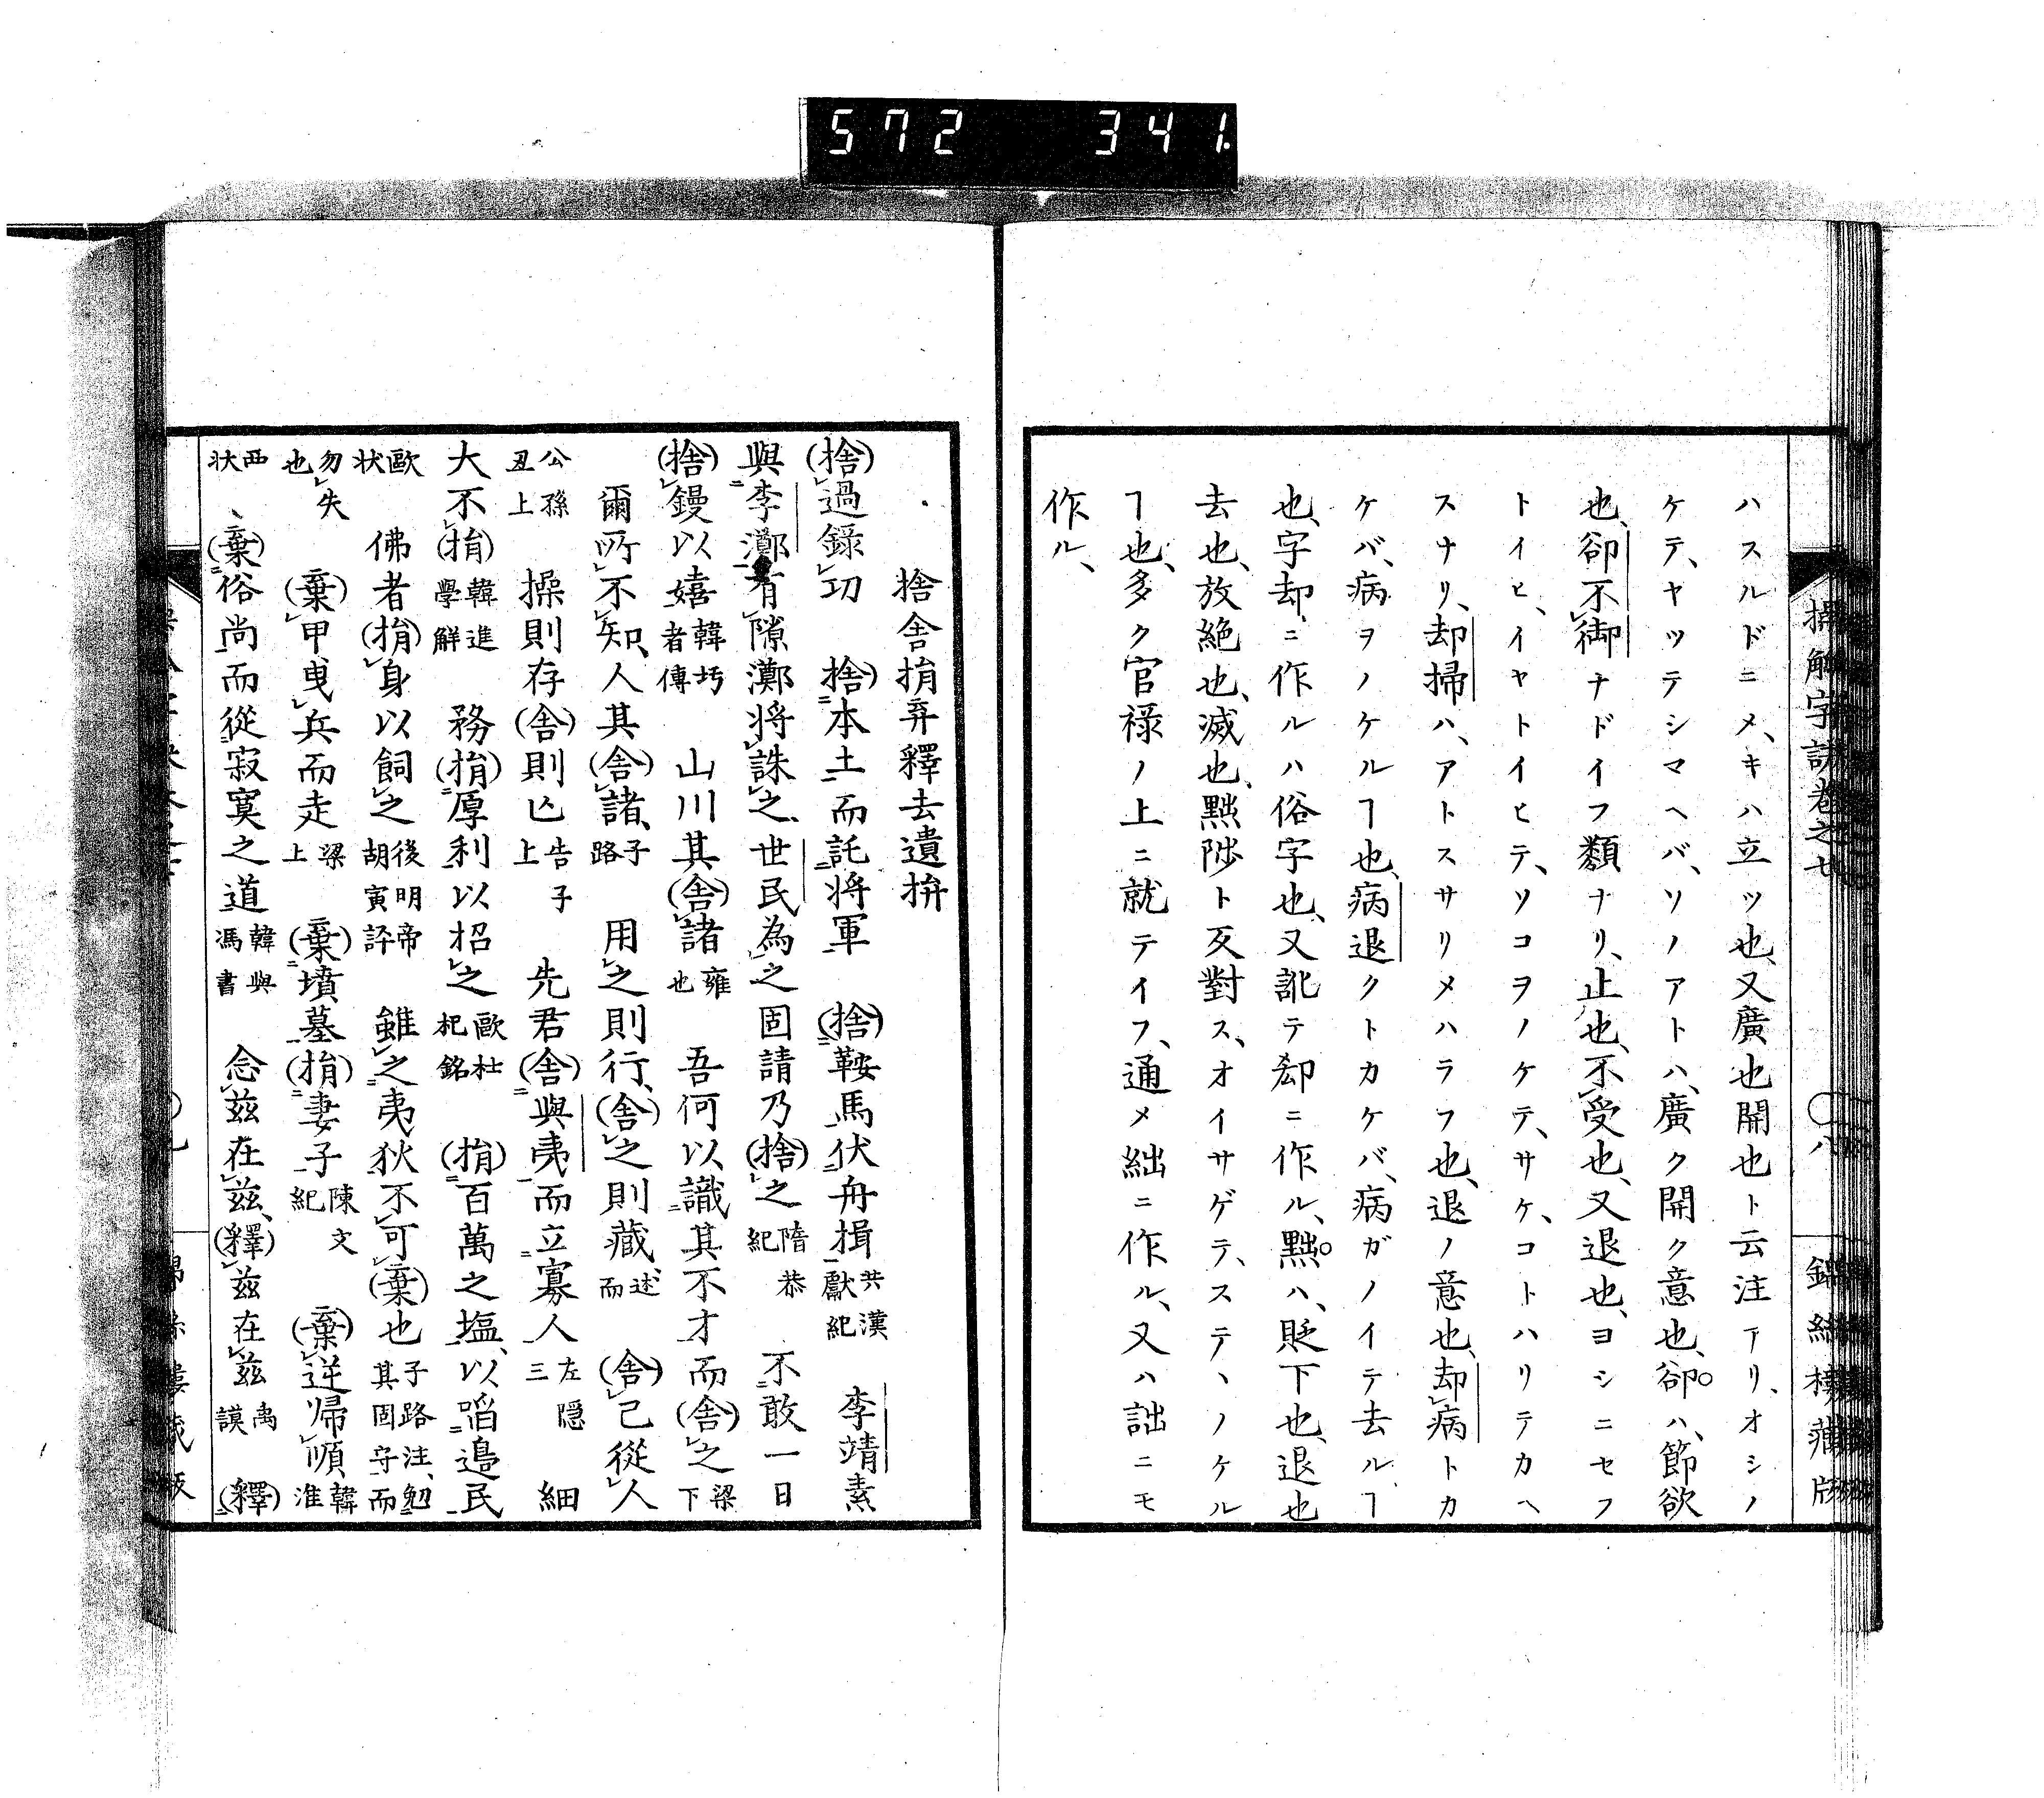 572 341.
操觚字訣卷之廿
八
錦絲樓藏版
ハスルドニメ、キハ立ツ也、又廣也開也ト云注アリ、オシノ
ケテ、ヤツテシマヘバ、ソノアトハ、廣ク開ク意也、卻ハ、節欲
也、卻不御ナドイフ類ナリ、止也、不受也、又退也、ヨシニセフ
トイヒ、イヤトイヒテ、ソコヲノケテ、サケ、コトハリテカヘ
スナリ、却掃ハ、アトスサリメハラフ也、退ノ意也、却病トカ
ケバ、病ヲノケルヿ也、病退クトカケバ、病ガノイテ去ルヿ
也、字却ニ作ルハ俗字也、又訛テ郄ニ作ル、黜ハ、貶下也、退也
去也、放絶也、滅也、黜陟ト反對ス、オイサゲテ、ステヽノケル
ヿ也、多ク官禄ノ上ニ就テイフ、通メ絀ニ作ル、又ハ詘ニモ
作ル、
捨舎捐弃釋去遺拚
捨過錄功 捨本土而託将軍 捨鞍馬伏舟揖 共漢獻紀 李靖素
與李灪有隙灪将誅之、世民為之固請乃捨之 隋恭紀 不敢一日
捨鏝以嬉 韓圬者傳 山川其舎諸 雍也 吾何以識其不才而舎之 梁下
爾所不知、人其舎諸、 子路 用之則行、舎之則藏、 述而 舎己從人
公孫丑上 操則存舎則亾 告子上 先君舎與夷而立寡人 左隠三 細
大不捐 韓進學解 務捐厚利以招之 歐杜杞銘 捐百萬之塩、以啗邉民
歐状 佛者捐身以飼之 後明帝胡寅評 雖之夷狄不可棄也 子路注、勉其固守而
勿失也 棄甲曳兵而走 梁上 棄墳墓捐妻子 陳文紀 棄逆帰順、 韓淮
西状、 棄俗尚而從寂寞之道 韓與馮書 念茲在茲、釋茲在茲 禹謨 釋